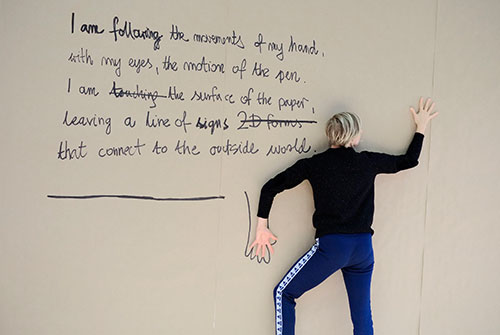 I am following the movements of my hand,
with my eyes, the motion of the pen.
I am touching the surface of the paper,
leaving a line of signs 2D forms
that connect to the outside world.